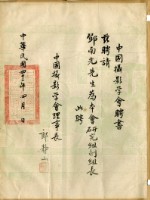 中國攝影學會聘書
茲聘請
鄧南光先生為本會研究組副組長
此聘
中國攝影學會理事長
郎靜山
中華民國四十三年四月 日